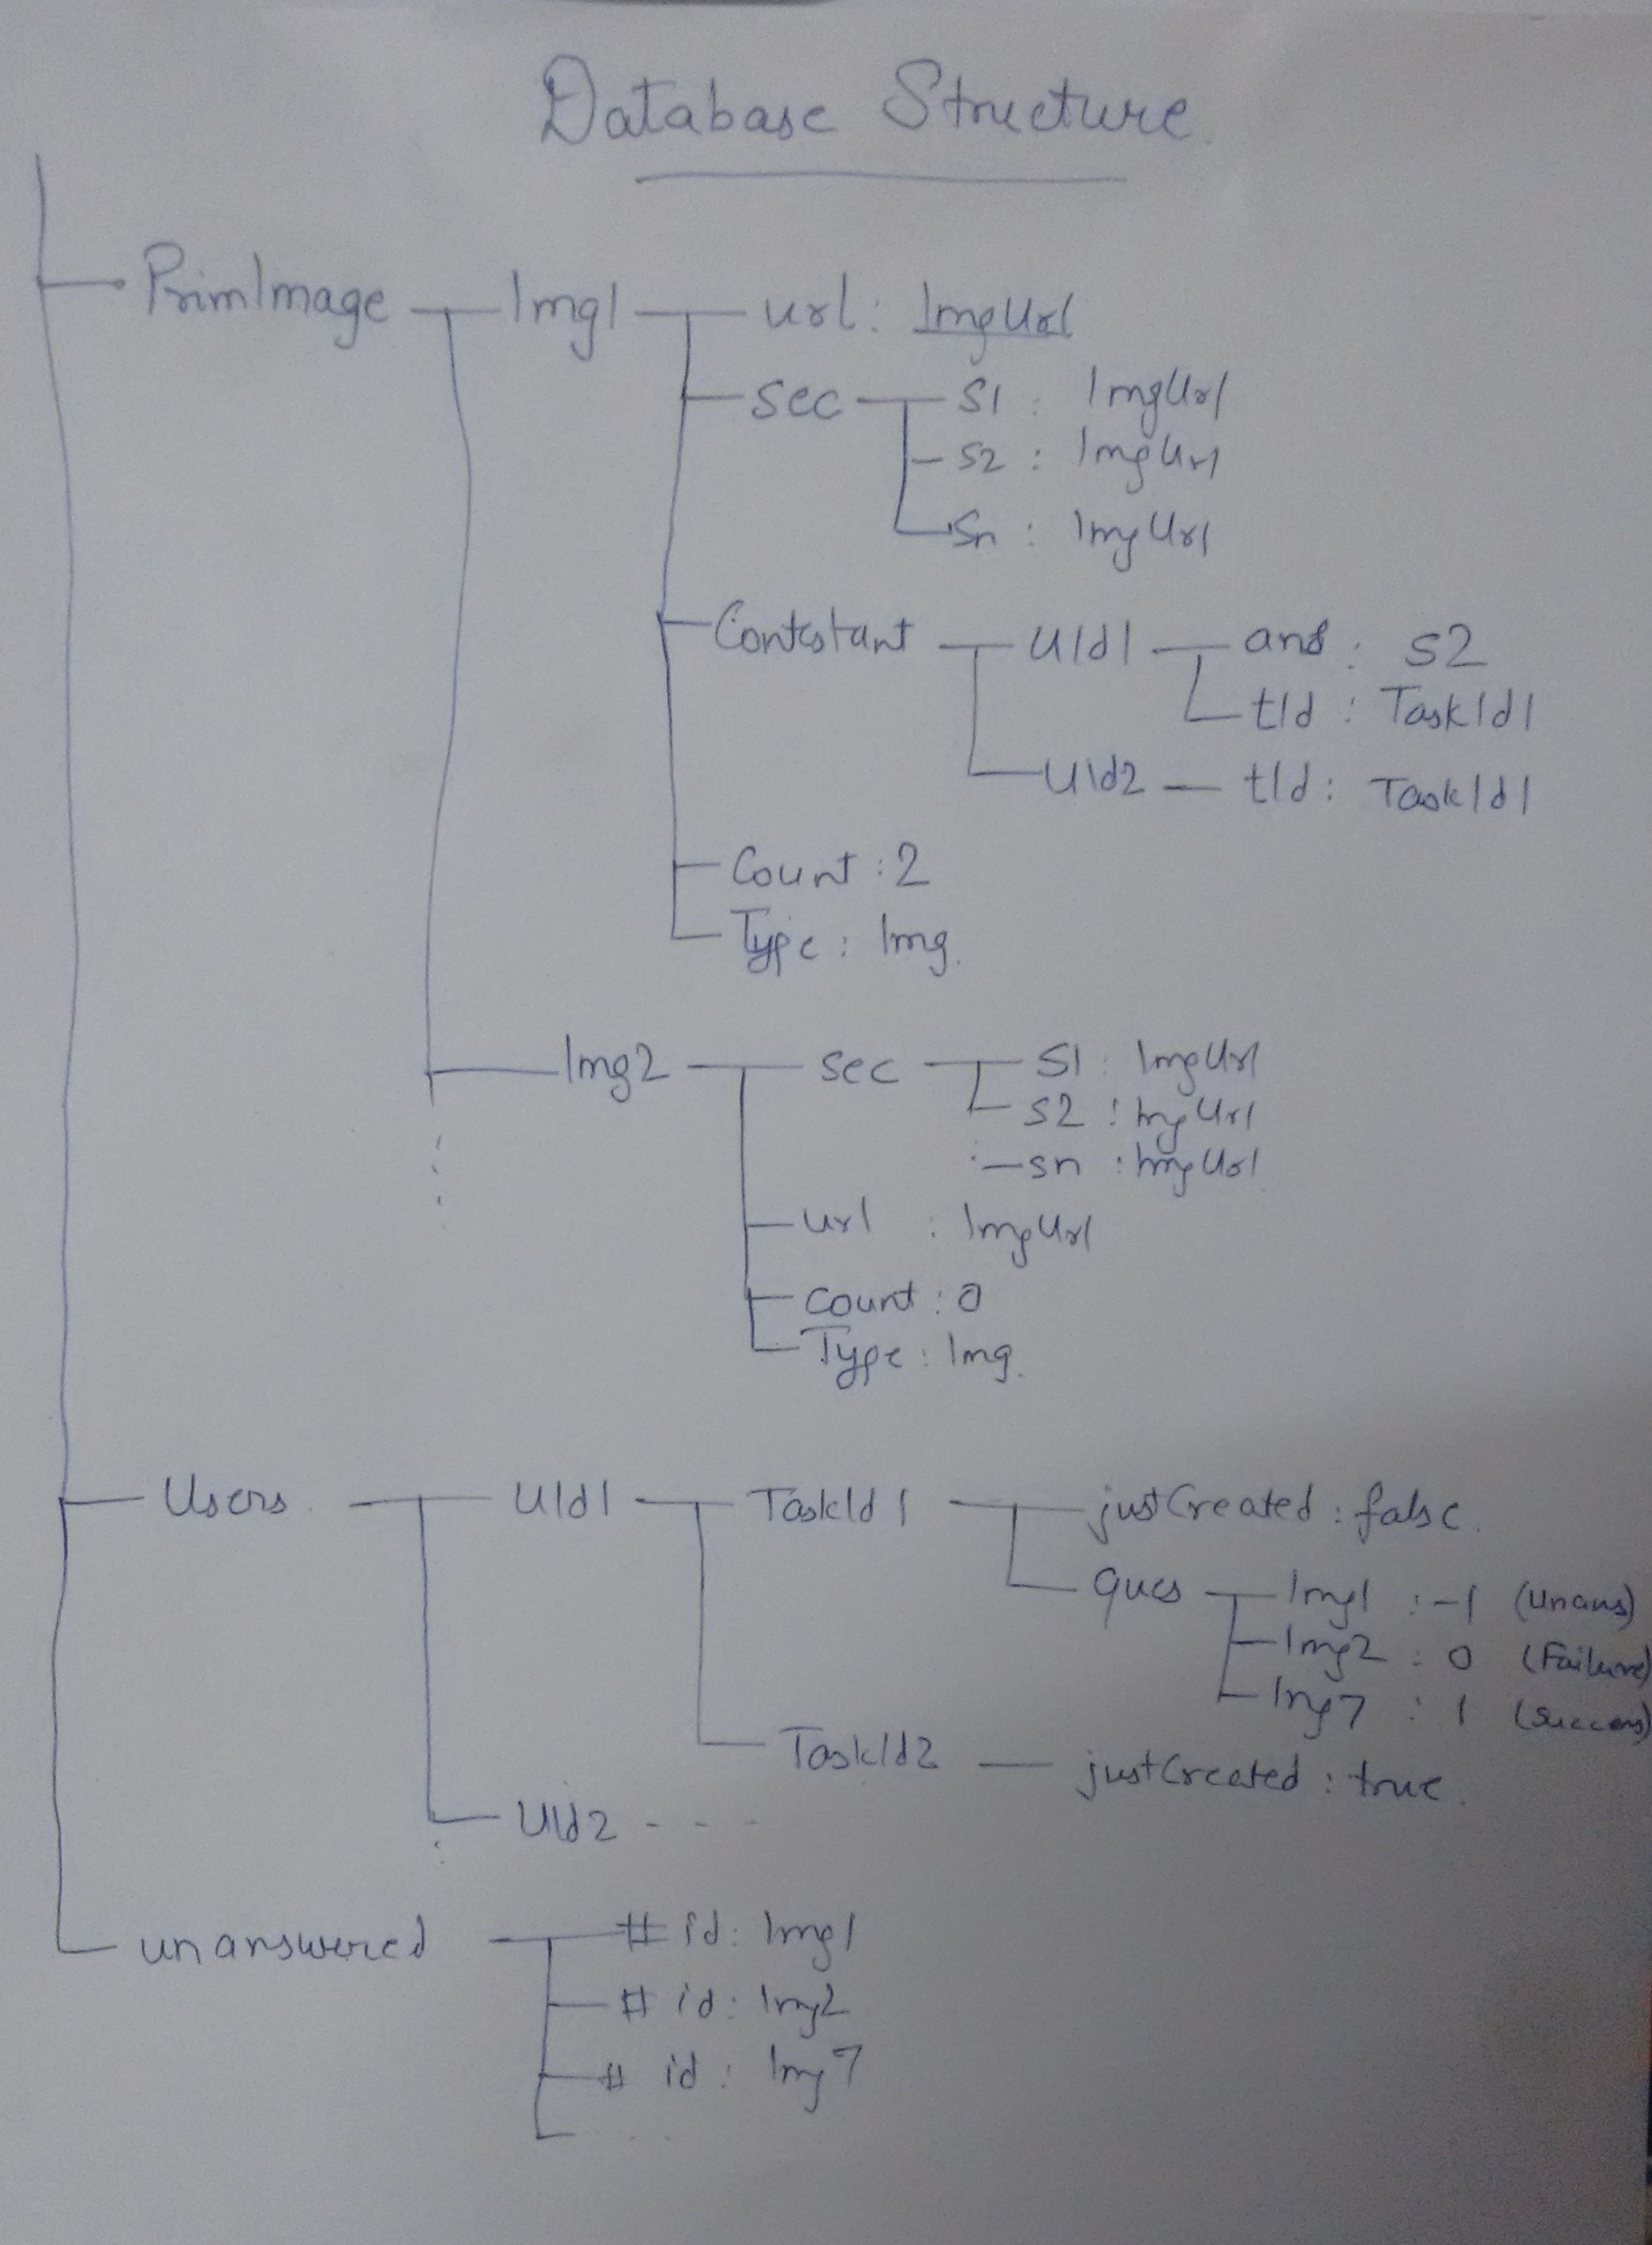 Database Structure
PrimImage Img1 url: ImgUrl
sec S1 : ImgUrl
S2 : ImgUrl
Sn : ImgUrl
Contestant UId1 ans : S2
tId : TaskId1
UId2 tId : TaskId1
Count : 2
Type : Img.
Img2 sec S1 : ImgUrl
S2 : ImgUrl
sn : ImgUrl
url : ImgUrl
count : 0
Type : Img.
Users UId1 TaskId1 justCreated : false.
ques Img1 : -1 (Unans)
Img2 : 0 (Failure)
Img7 : 1 (Success)
TaskId2 justCreated : true.
UId2 - - -
unanswered # id: Img1
# id: Img2
# id: Img7